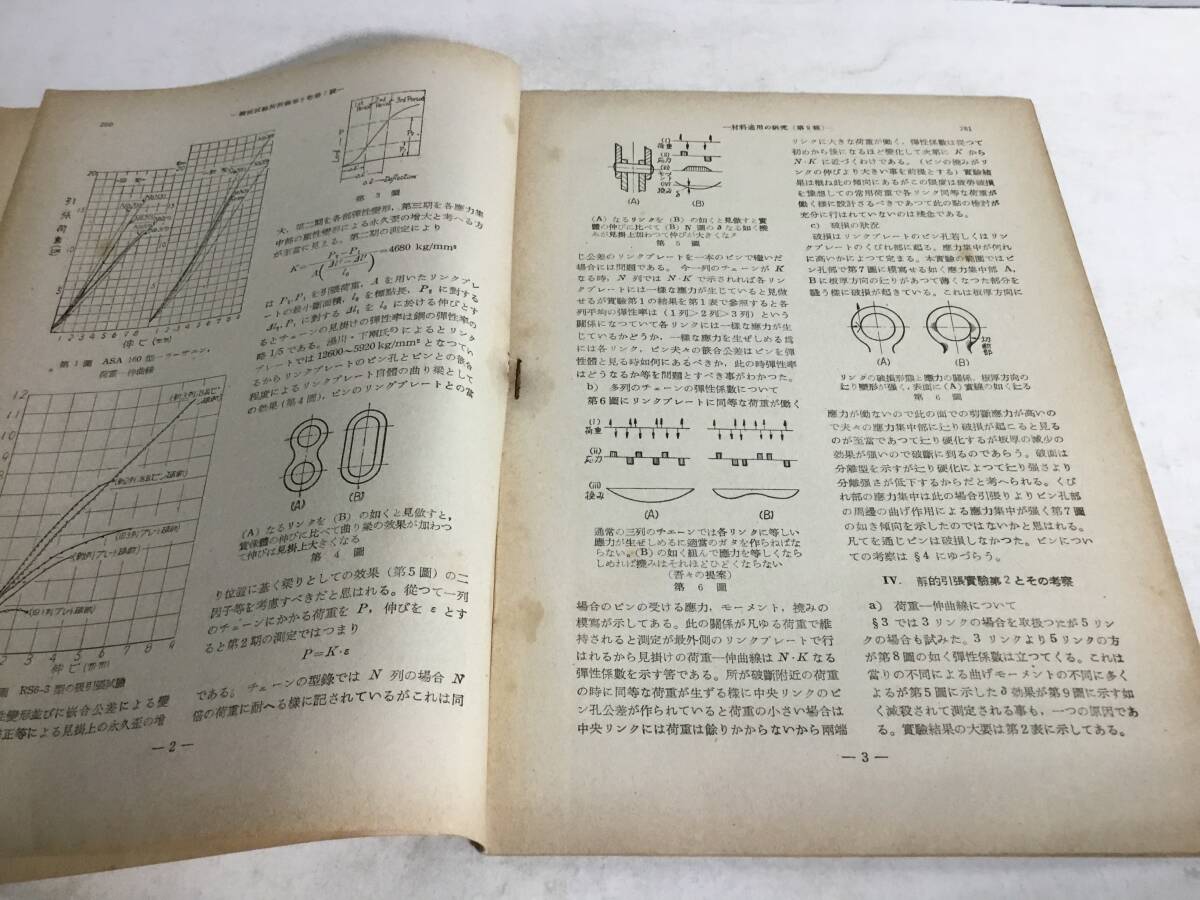 260
1st Period
2nd Period
3rd Period
Deflection
第3圖
大、第二期を各部彈性變形、第三期を各應力集
中部の塑性變形による永久歪の増大と考へる方
が至當に見える。第二期の測定により
=4680 kg/mm²
引張荷重
伸び(mm)
第1圖 ASA 160型
荷重―伸曲線
は P₂, P₁ を引張荷重, A を用いたリンクプレ
ートの最小斷面積, l₀ を標點長, P₂ に對する
るとチェーンの見掛けの彈性率は鋼の彈性率の
略1/5である。
ートでは12600~5920 kg/mm² となつてい
るからリンクプレートのピン孔とピンとの嵌合
程度によるリンクプレート自體の曲り梁として
の効果(第4圖), ピンのリングプレートとの當
(A)
(B)
(A)なるリンクを(B)の如くと見做すと,
實體の伸びに比べて曲り梁の効果が加わつ
て伸びは見掛上大きくなる
第4圖
12
11
10
9
8
7
6
5
4
2 3 4 5 6 7 8 9
伸び(mm)
圖 RS6-3型の吸引張試驗
性變形並びに嵌合公差による變
正等による見掛上の永久歪の増
り位置に基く梁りとしての効果(第5圖)の二
因子等を考慮すべきだと思はれる。從つて一列
のチェーンにかかる荷重を P, 伸びを ε とす
ると第2期の測定ではつまり
P=K·ε
である。チェーンの型錄では N 列の場合 N
倍の荷重に耐へる様に記されているがこれは同
— 2 —
—材料適用の研究(第9報)—
261
(i)
荷重
(ii)
應力
(iii)
モーメント
(iv)
撓み
(A)
(B)
(A)なるリンクを(B)の如くと見做すと實
體の伸びに比べて(B)N圖のδなる如く撓
みが見掛上加わつて伸びが大きくなる
第5圖
じ公差のリンクプレートを一本のピンで縫いだ
場合には問題である。今一列のチェーンが K
なる時, N 列では N·K で示されれば各リン
クプレートには一様な應力が生じていると見做
せるが實驗第1の結果を第1表で參照すると各
列平均の彈性率は(1列>2列>3列)という
關係になつていて各リンクには一様な應力が生
じているかどうか, 一様な應力を生ぜしめる爲
には各リンク, ピン夫々の嵌合公差はピンを彈
性體と見る時如何にあるべきか, 此の時彈性率
はどうなるか等を問題とすべき事がわかつた。
b) 多列のチェーンの彈性係數について
第6圖にリンクプレートに同等な荷重が働く
(i)
荷重
(ii)
應力
(iii)
撓み
(A)
(B)
通常の三列のチェーンでは各リンクに等しい
應力が生ぜしめるに適當のガタを作らねばな
らない。(B)の如く組んで應力を等しくなら
しめれば撓みはそれほどひどくならない
(吾々の提案)
第6圖
場合のピンの受ける應力, モーメント, 撓みの
模寫が示してある。此の關係が凡ゆる荷重で維
持されると測定が最外側のリンクプレートで行
はれるから見掛けの荷重―伸曲線は N·K なる
彈性係數を示す筈である。所が破斷附近の荷重
の時に同等な荷重が生ずる様に中央リンクのピ
ン孔公差が作られていると荷重の小さい場合は
中央リンクには荷重は餘りかからないから兩端
リンクに大きな荷重が働く, 彈性係數は從つて
初めから後になるほど變化して次第に K から
N·K に近づくわけである。(ピンの撓みがリ
ンクの伸びより大きい事を前提とする)實驗結
果は概ね此の傾向にあるがこの限度は疲勞破損
を豫想しての常用荷重で各リンク同等な荷重が
働く様に設計さるべきであつて此の點の檢討が
充分に行はれていないのは殘念である。
c) 破損の狀況
破損はリンクプレートのピン孔若しくはリン
クプレートのくびれ部に起る。應力集中が何れ
に高いかによつて定まる。本實驗の範圍ではピ
ン孔部で第7圖に模寫せる如く應力集中部A,
Bに板厚方向の辷りがあつて薄くなつた部分を
縫う様に破損が起きている。これは板厚方向に
(A)
(B)
切斷部
リンクの破損形態と應力の關係, 板厚方向の
辷り變形が强く, 表面に(A)實線の如く辷る
第6圖
應力が働ないので此の面での剪斷應力が高いの
で夫々の應力集中部に辷り破損が起こると見る
のが至當であつて辷り硬化するが板厚の減少の
効果が强いので破斷に到るのであらう。破面は
分離型を示すが辷り硬化によつて辷り强さより
分離强さが低下するからだと考へられる。くび
れ部の應力集中は此の場合引張りよりピン孔部
の周邊の曲げ作用による應力集中が强く第7圖
の如き傾向を示したのではないかと思はれる。
凡てを通じピンは破損しなかつた。ピンについ
ての考察は§4にゆづらう。
IV. 靜的引張實驗第2とその考察
a) 荷重―伸曲線について
§3では3リンクの場合を取扱つたが5リン
クの場合も試みた。3リンクより5リンクの方
が第8圖の如く彈性係數は立つてくる。これは
當りの不同による曲げモーメントの不同に多く
よるが第5圖に示したδ効果が第9圖に示す如
く減殺されて測定される事も, 一つの原因であ
る。實驗結果の大要は第2表に示してある。
— 3 —